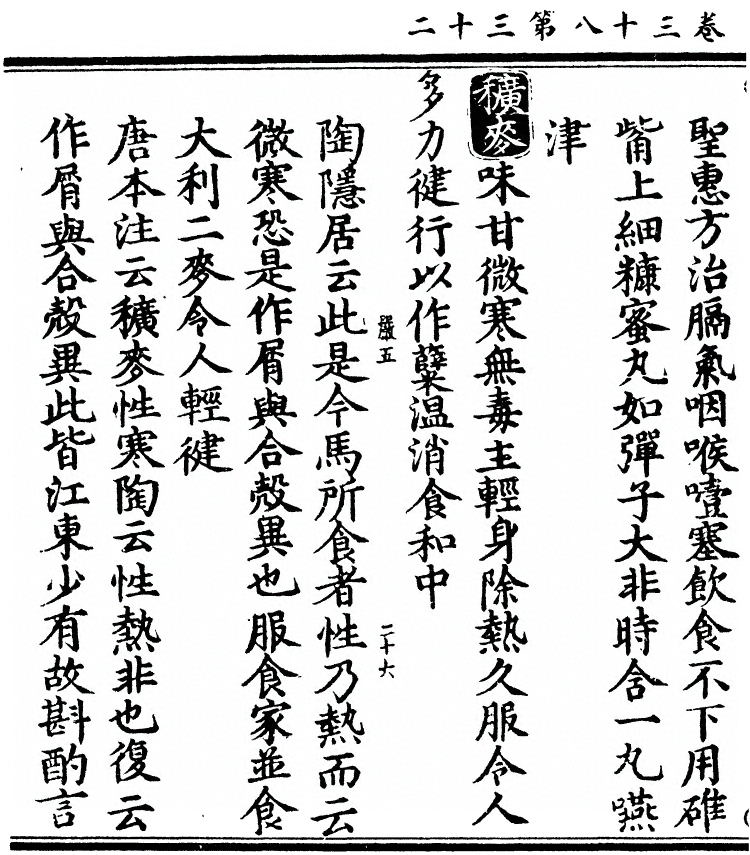 卷三十八第三十二
聖惠方治膈氣咽喉噎塞飲食不下用碓
觜上細糠蜜丸如彈子大非時含一丸嚥
津
穬麥味甘微寒無毒主輕身除熱久服令人
多力健行以作糵温消食和中
五
二十六
陶隱居云此是今馬所食者性乃熱而云
微寒恐是作屑與合殼異也服食家並食
大利二麥令人輕健
唐本注云穬麥性寒陶云性熱非也復云
作屑與合殼異此皆江東少有故斟酌言